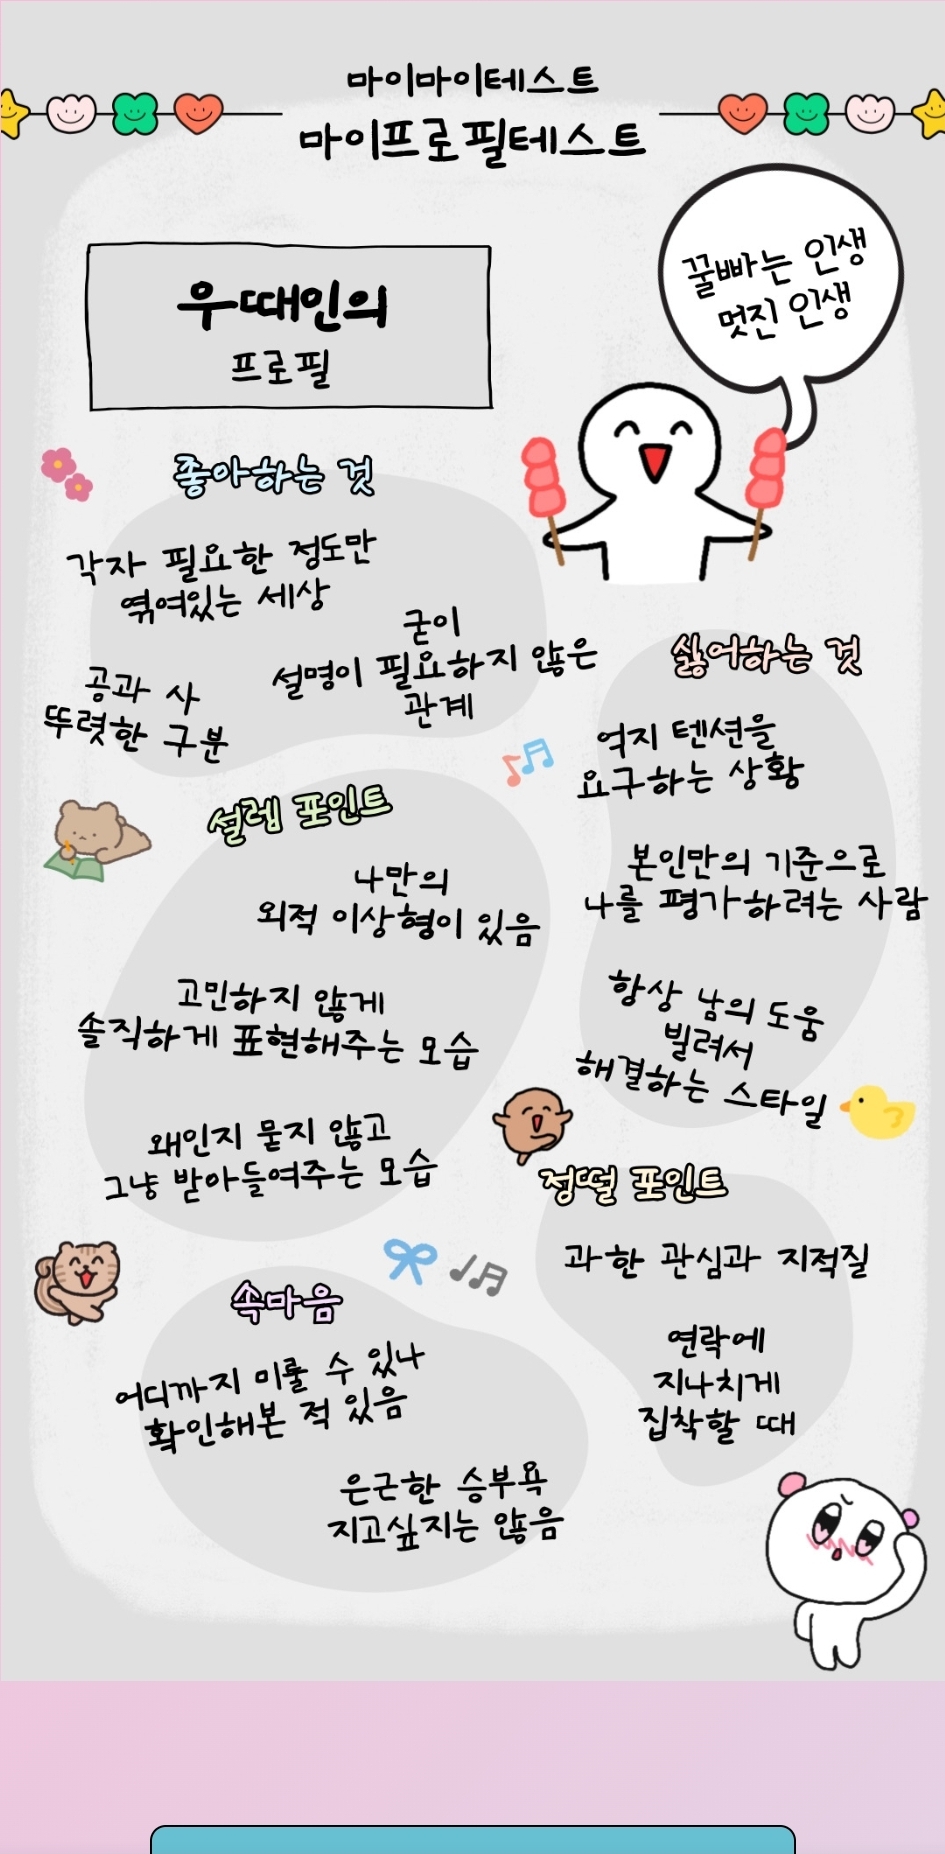 마이마이테스트
마이프로필테스트
꿀빠는 인생
멋진 인생
우때인의
프로필
좋아하는 것
각자 필요한 정도만
엮여있는 세상
굳이
설명이 필요하지 않은
관계
공과 사
뚜렷한 구분
싫어하는 것
억지 텐션을
요구하는 상황
본인만의 기준으로
나를 평가하려는 사람
항상 남의 도움
빌려서
해결하는 스타일
설렘 포인트
나만의
외적 이상형이 있음
고민하지 않게
솔직하게 표현해주는 모습
왜인지 묻지 않고
그냥 받아들여주는 모습
정떨 포인트
과한 관심과 지적질
연락에
지나치게
집착할 때
속마음
어디까지 미룰 수 있나
확인해본 적 있음
은근한 승부욕
지고싶지는 않음